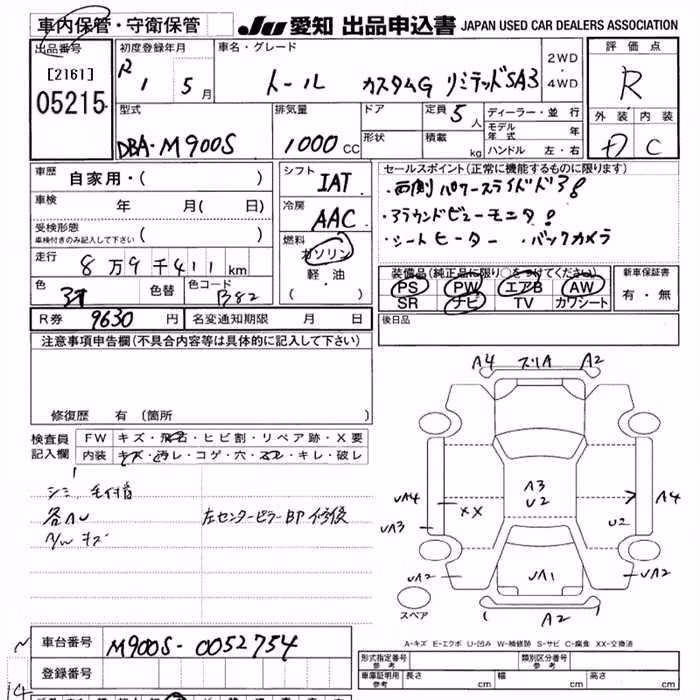 車内保管・守衛保管
JU 愛知 出品申込書 JAPAN USED CAR DEALERS ASSOCIATION
出品番号
[2161]
05215
初度登録年月
R 1 5月
車名・グレード
トール カスタムG リミテッドSA3
2WD
・
4WD
評価点
R
外装 内装
D C
型式
DBA-M900S
排気量
1000cc
ドア
形状
定員 5人
積載 kg
ディーラー・並行
モデル年式 年
ハンドル 左・右
車歴 自家用・( )
車検 年 月( 日)
受検形態
車検付きのみ記入して下さい ( )
走行 8万9千411km
色 色替 色コード B82
シフト
IAT
冷房
AAC
燃料
ガソリン
軽・油
( )
セールスポイント(正常に機能するものに限ります)
・両側パワースライドドア!
・アラウンドビューモニタ!
・シートヒーター ・バックカメラ
装備品(純正品に限り○をつけてください)
PS PW エアB AW
SR ナビ TV カワシート
新車保証書
有・無
R券 9630円 名変通知期限 月 日
後日品
注意事項申告欄(不具合内容等は具体的に記入して下さい)
修復歴 有(箇所 )
検査員記入欄
FW キズ・飛石・ヒビ割・リペア跡・X要
内装 キズ・汚レ・コゲ・穴・スレ・キレ・破レ
シミ, 毛付着
各AU 左センターピラーBP修復
A/W キズ
A4 スリA A2
A3
U2
UA4
XX
UA3
U2
A4
UA2
UA1
UA2
A2
スペア
A-キズ E-エクボ U-凹み W-補修跡 S-サビ C-腐食 XX-交換済
車台番号 M900S-0052754
登録番号
形式指定番号
参考
類別区分番号
参考
車庫証明用
参考
長さ cm 幅 cm 高さ cm
14